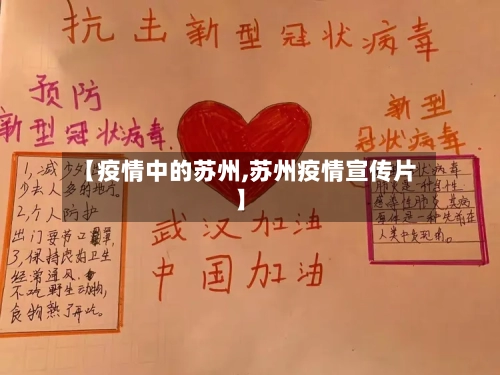 抗击新型冠状病毒
预防
新型冠状病毒
新型
冠状病毒
【疫情中的苏州,苏州疫情宣传片
】
1,减少
少去人多的地方。
2,个人防护
出门要带口罩,
3,保持良好卫生
经常通风,
不吃野生动物,
食物熟了再吃。
人类中发现的。
武汉加油
中国加油